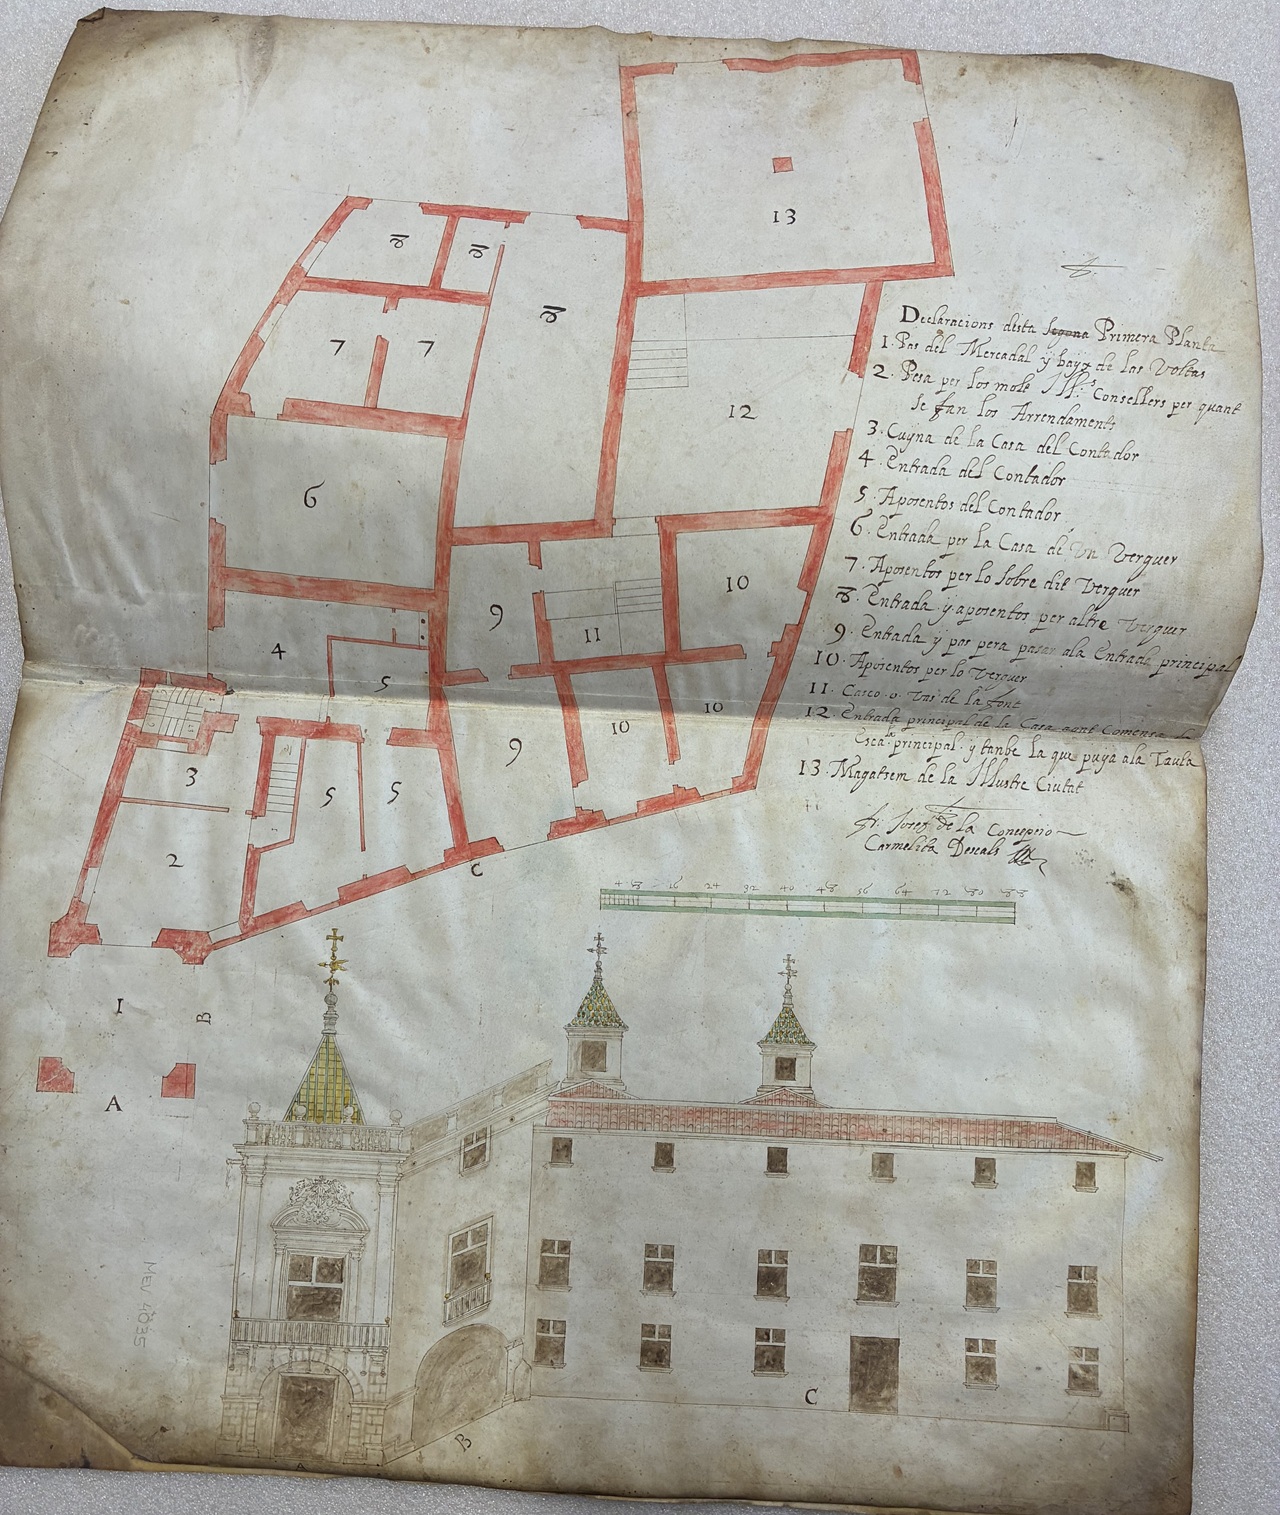 13
8
8
8
7
7
12
6
10
9
11
4
5
10
10
9
3
5
5
2
C
1
B
A
Declaracions desta segona Primera Planta
1. Pas del Mercadal y baix de las Voltas
2. Pesa per los molt Ill.s Consellers per quant
se fan los Arrendaments
3. Cuyna de la Casa del Contador
4. Entrada del Contador
5. Aposentos del Contador
6. Entrada per la Casa de Un Verguer
7. Aposentos per lo sobre dit Verguer
8. Entrada y aposentos per altre Verguer
9. Entrada y pas pera pasar ala Entrada principal
10. Aposentos per lo Verguer
11. Casco o Vas de la font
12. Entrada principal de la Casa aont Comensa la
Escala principal y tanbe la que puya ala Taula
13. Magatsem de la Illustre Ciutat
fr. Josef de la Concepcio
Carmelita Descals
4 8 16 24 32 40 48 56 64 72 80 88
MEV 4035
C
B
A